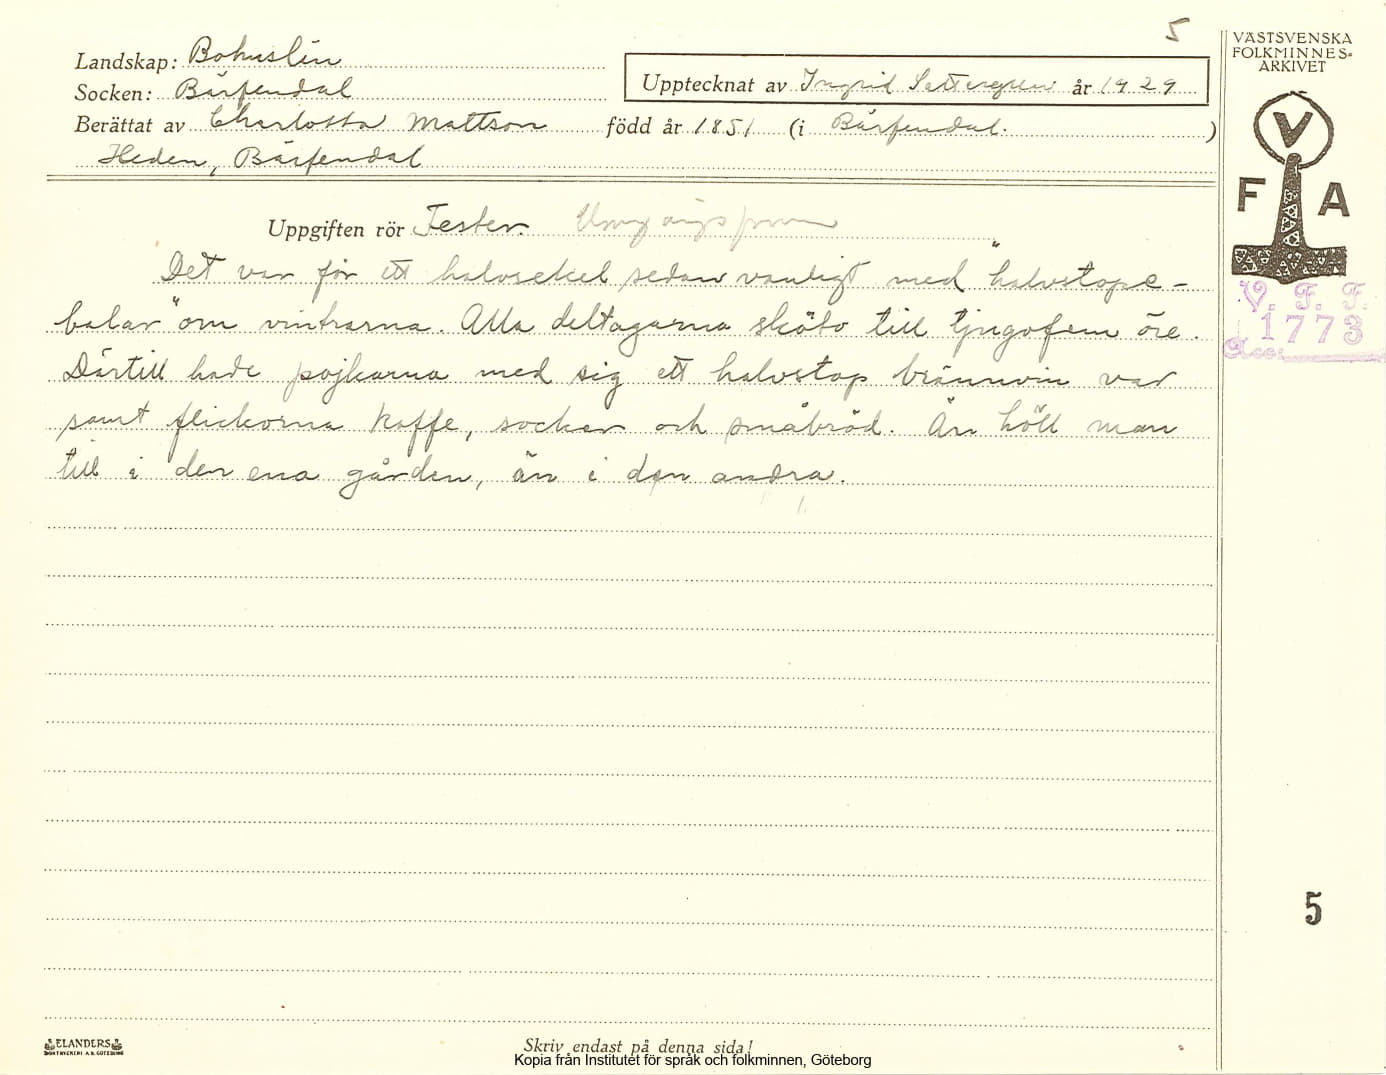 5
VÄSTSVENSKA
FOLKMINNES-
ARKIVET
Landskap: Bohuslän
Upptecknat av Ingrid Settergren år 1929
Socken: Bärfendal
Berättat av Charlotta Mattson född år 1851 (i Bärfendal. )
Heden, Bärfendal
V
F A
Uppgiften rör Fester. Umgängsformer
Det var för ett halvsekel sedan vanligt med "halvstope-
balar" om vintrarna. Alla deltagarna sköto till tjugofem öre.
Därtill hade pojkarna med sig ett halvstop brännvin var
samt flickorna kaffe, socker och småbröd. Än höll man
till i den ena gården, än i den andra.
V. F. F.
1773
Acc:
5
ELANDERS
BOKTRYCKERI A.B. GÖTEBORG
Skriv endast på denna sida!
Kopia från Institutet för språk och folkminnen, Göteborg